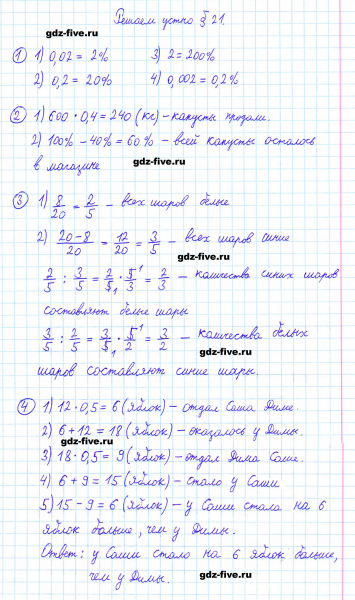 Решаем устно § 21.
gdz-five.ru
① 1) 0,02 = 2% 3) 2 = 200%
2) 0,2 = 20% 4) 0,002 = 0,2%
② 1) 600 · 0,4 = 240 (кг) – капусты продали.
2) 100% – 40% = 60% – всей капусты осталось
в магазине
gdz-five.ru
③ 1) 8/20 = 2/5 – всех шаров белые
2) (20-8)/20 = 12/20 = 3/5 – всех шаров синие
gdz-five.ru
2/5 : 3/5 = 2/5₁ · 5¹/3 = 2/3 – количества синих шаров
составляют белые шары
3/5 : 2/5 = 3/5₁ · 5¹/2 = 3/2 – количества белых
gdz-five.ru
шаров составляют синие шары.
④ 1) 12 · 0,5 = 6 (яблок) – отдал Саша Диме.
2) 6 + 12 = 18 (яблок) – оказалось у Димы.
gdz-five.ru
3) 18 · 0,5 = 9 (яблок) – отдал Дима Саше.
4) 6 + 9 = 15 (яблок) – стало у Саши
5) 15 – 9 = 6 (яблок) – у Саши стало на 6
яблок больше, чем у Димы.
gdz-five.ru
Ответ: у Саши стало на 6 яблок больше,
чем у Димы.
gdz-five.ru